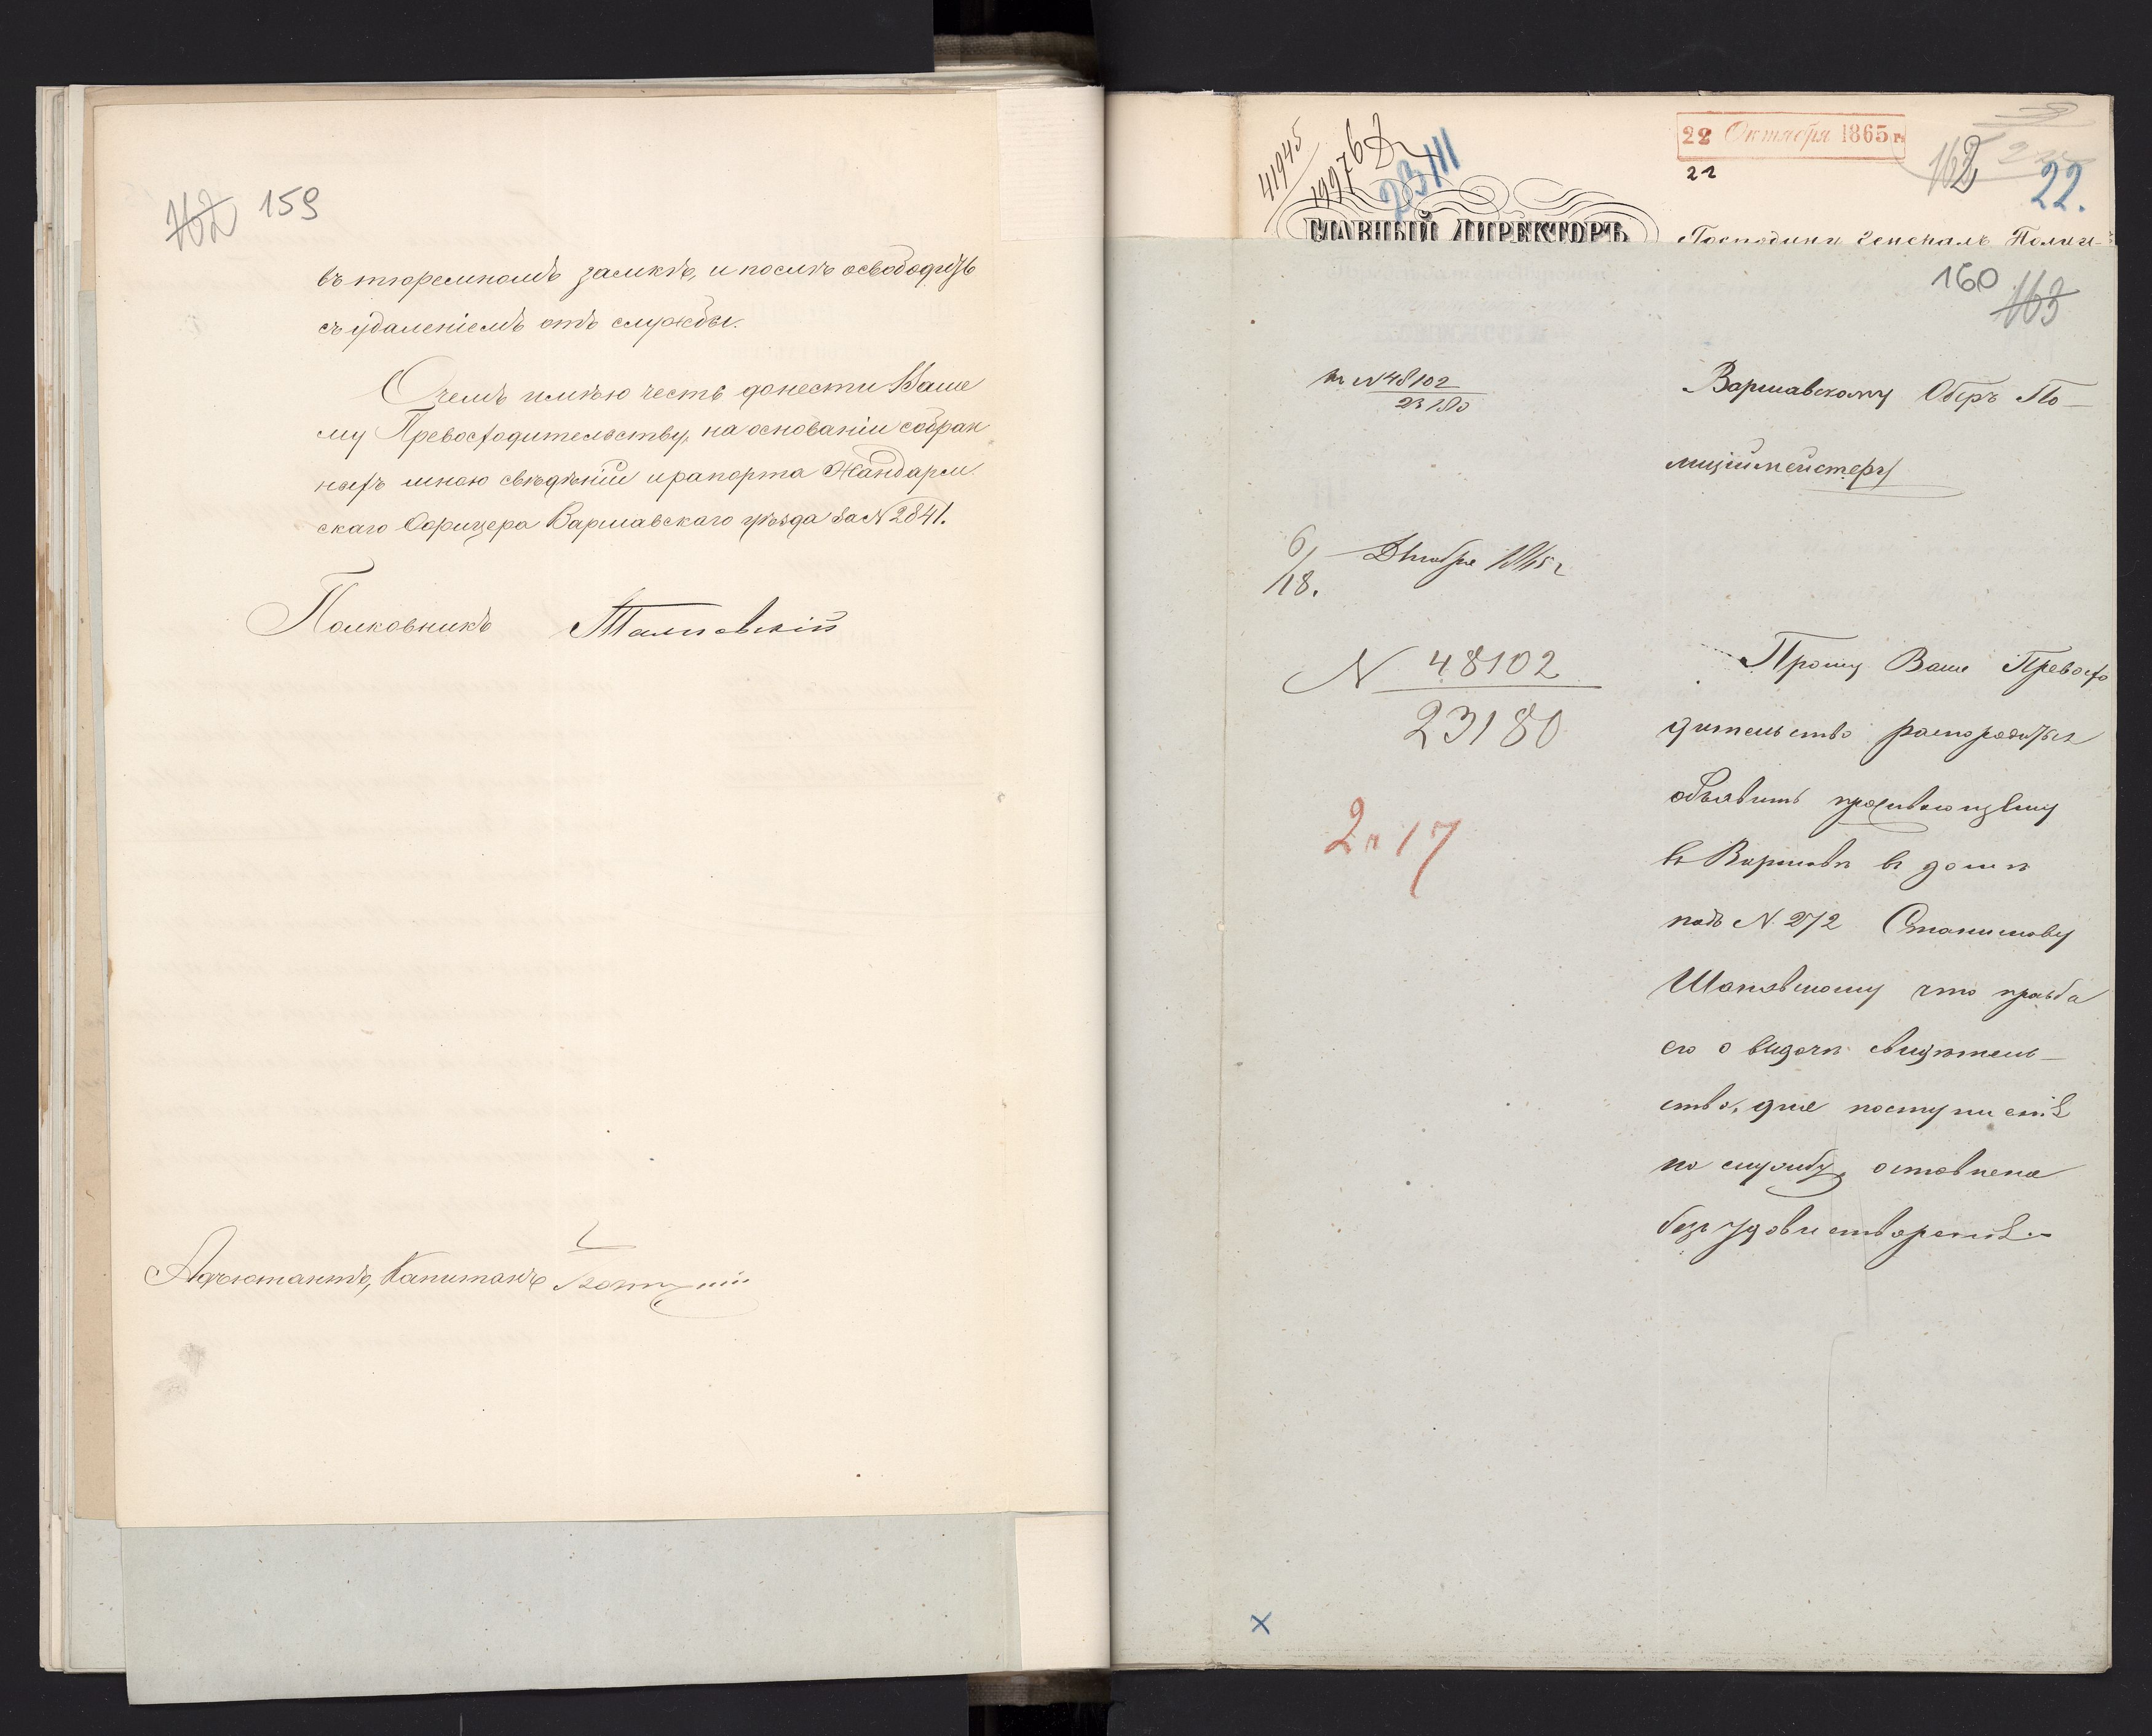 162 159
въ тюремномъ замкѣ, и послѣ освобожд
съ удаленіемъ отъ службы.
О чемъ имѣю честь донести Ваше
му Превосходительству, на основаніи собран
ныхъ мною свѣдѣній и рапорта Жандарм
скаго Офицера Варшавскаго уѣзда за N 2841.
Полковникъ
Адъютантъ, Капитанъ
41945
19976
23/III
22 Октября 1865 г.
22
162
22.
ГЛАВНЫЙ ДИРЕКТОРЪ
Господинъ Генералъ Полици-
160
163
къ N 48102
23180
Варшавскому Оберъ По-
лиціймейстеру
6/18. 1865 г
N 48102
23180
2 п 17
Прошу Ваше Превосхо
дительство распорядиться
объявить проживающему
въ Варшавѣ въ домѣ
подъ N. 272 Станиславу
что прозьба
его о выдачѣ свидѣтель-
ства, для поступленія
на службу, оставлена
безъ удовлетворенія.-
x